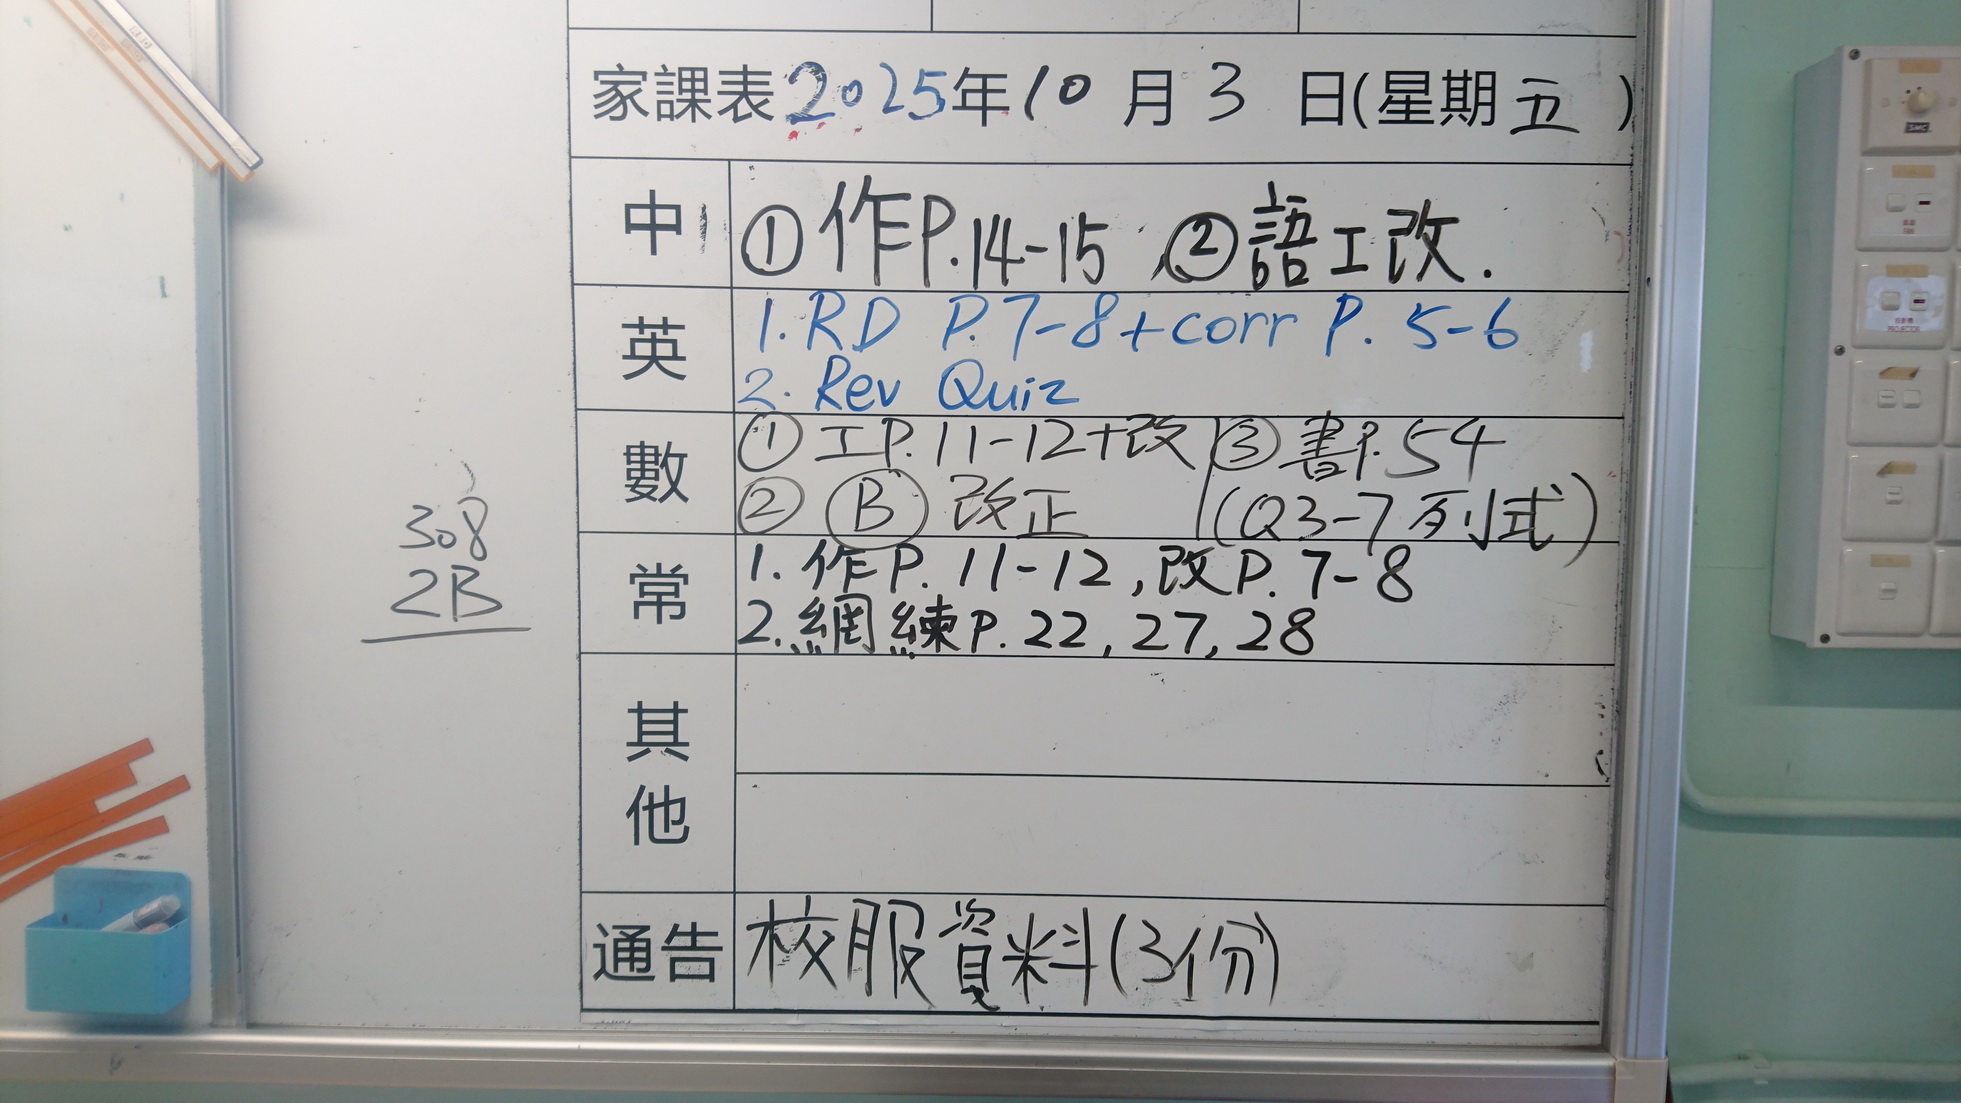 家課表2025年10月3日(星期五)
中 ①作P.14-15 ②語工改.
英 1. RD P.7-8+corr P. 5-6
2. Rev Quiz
數 ①工P.11-12+改 ③書P.54
② Ⓑ 改正 (Q3-7列式)
常 1. 作P. 11-12,改P. 7-8
2. 網練P. 22, 27, 28
其他
通告 校服資料(3份)
308
2B